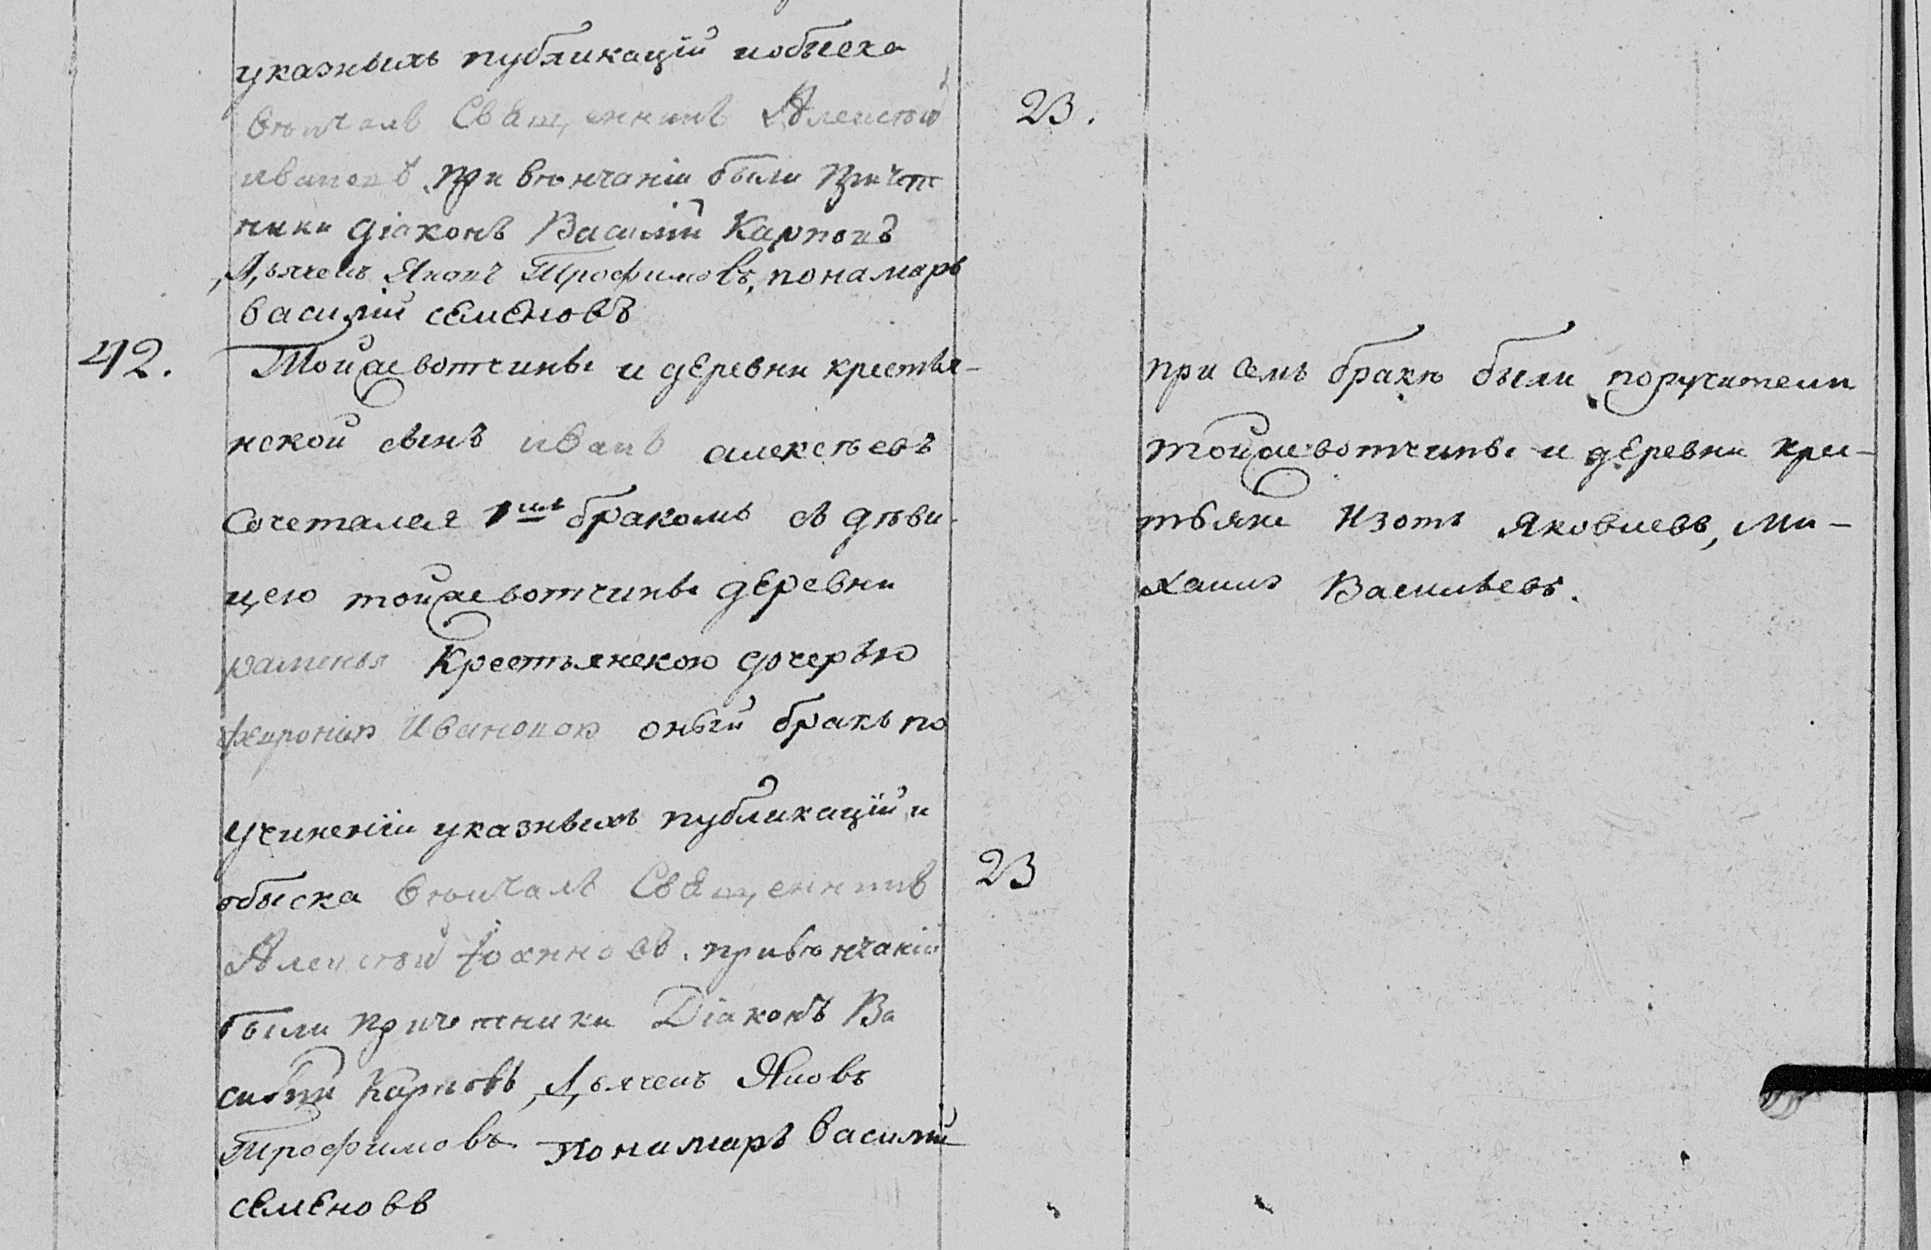 указныхъ публикацій и обыска
вѣнчалъ Священникъ Алексѣй
ивановъ при вѣнчаніи были причет
ники діаконъ Василій Карповъ
Дьячекъ Яковъ Трофимовъ, понамарь
василій семеновъ
23.
42.
Тойже вотчины и деревни крестья-
нской сынъ иванъ алексѣевъ
Сочетался 1мъ бракомъ съ дѣви-
цею тойже вотчины деревни
раменья Крестьянскою дочерью
феѵронію Ивановою оный бракъ по
учиненіи указныхъ публикацій и
обыска вѣнчалъ Священникъ
Алексѣй Іоанновъ. при вѣнчаніи
были причетники Діаконъ Ва
силій Карповъ, Дьячекъ Яковъ
Трофимовъ понамарь Василій
семеновъ
23
при семъ бракѣ были поручители
тойже вотчины и деревни кре-
стьяне Изотъ Яковлевъ, Ми-
хаилъ Васильевъ.